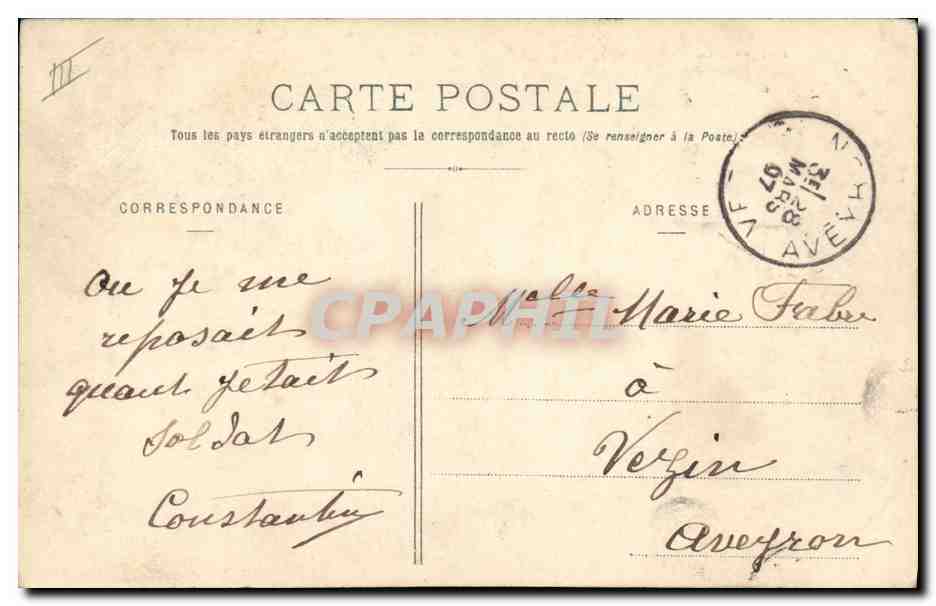 III
CARTE POSTALE
Tous les pays étrangers n'acceptent pas la correspondance au recto (Se renseigner à la Poste)
CORRESPONDANCE
ADRESSE
AVEY
MARS
07
ou je me
reposait
quant jetait
soldat
Constantin
CPAPHIL
Melle Marie Fabre
à
Vezin
Aveyron